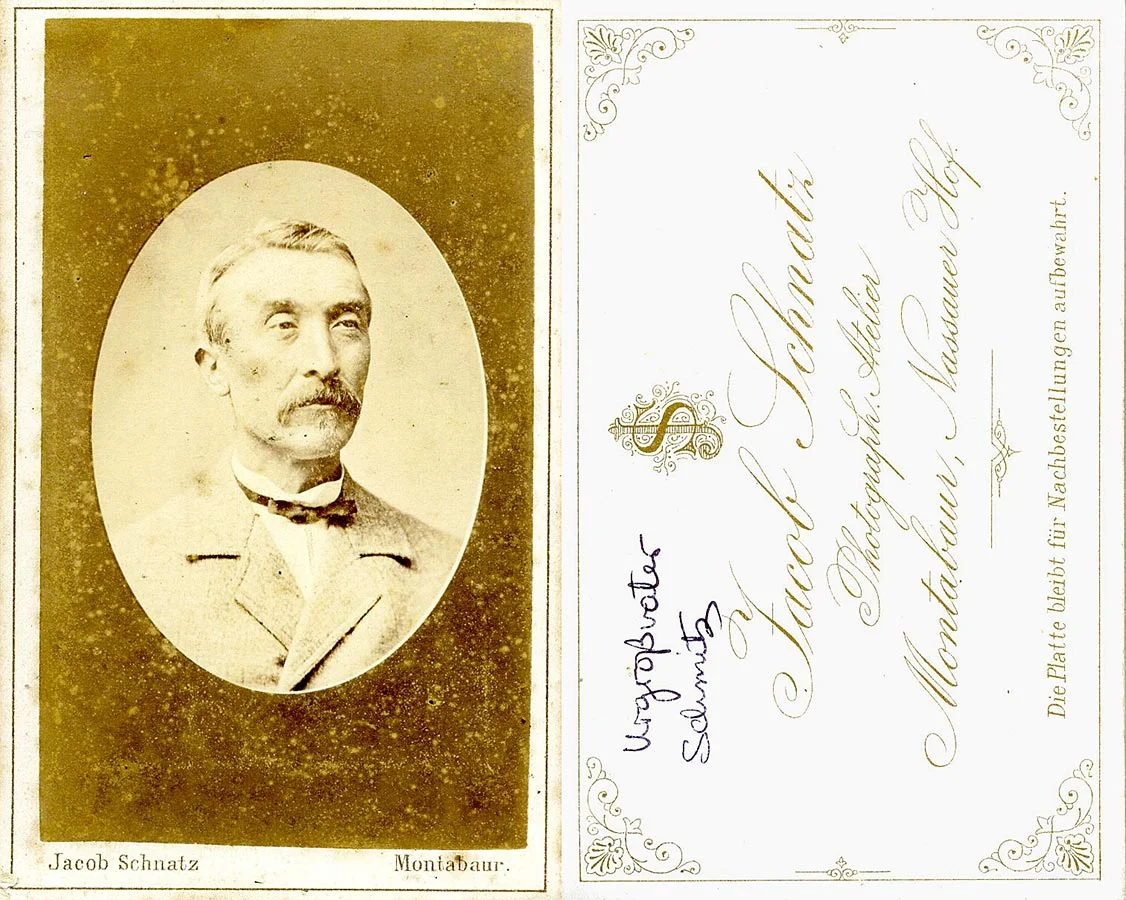 Jacob Schnatz
Montabaur.
Urgroßvater
Schmitz
JS
Jacob Schnatz
Photograph. Atelier
Montabaur, Nassauer Hof.
Die Platte bleibt für Nachbestellungen aufbewahrt.